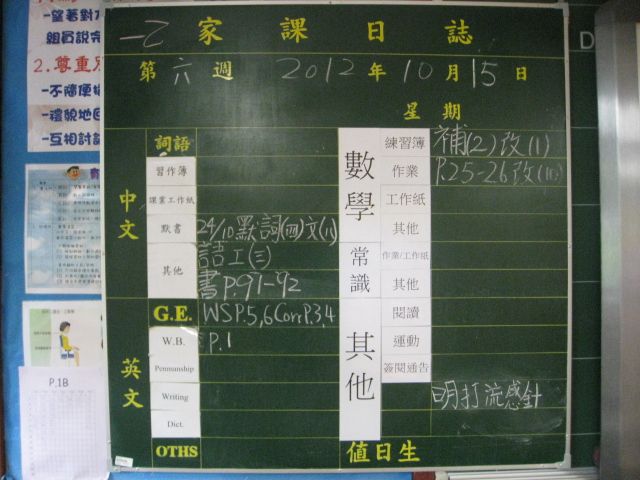 一乙 家課日誌
第 六 週 2012 年 10 月 15 日
星期
一望著對
組員說完
2.尊重
一不隨便
一禮貌地
一互相討
中文
詞語
習作簿
課業工作紙
默書 24/10 默 詞(四)文(八)
其他 語工(三)
書P.91-92
英文
G.E. WSP.5,6 Corr P.3,4
W.B. P.1
Penmanship
Writing
Dict.
OTHS
數學
練習簿 補(2)改(1)
作業 P.25-26改(10)
工作紙
其他
常識
作業/工作紙
其他
其他
閱讀
運動
簽閱通告
明打流感針
值日生
P.1B
D